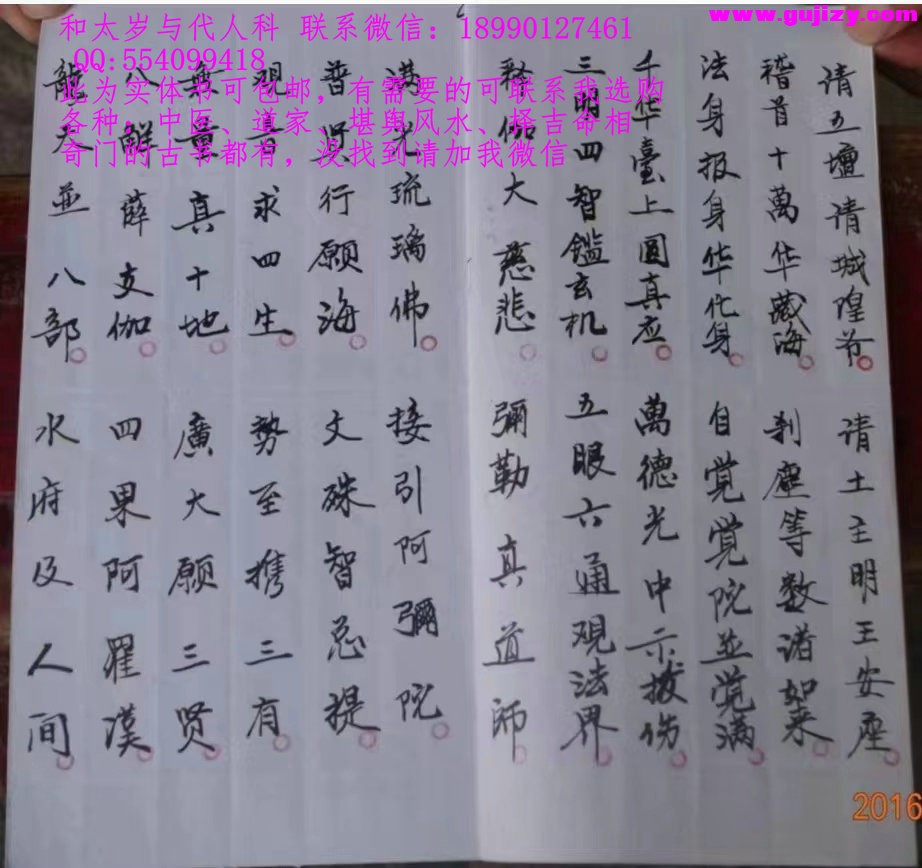 www.gujizy.com
和太岁与代人科 联系微信：18990127461
QQ:554099418
此为实体书可包邮，有需要的可联系我选购
各种：中医、道家、堪舆风水、择吉命相
奇门的古书都有，没找到请加我微信
请五壇请城隍爷 请土主明王安座
稽首十萬华藏海 刹塵等数诸如来
法身报身华化身 自觉觉院並觉满
千华臺上圆真应 萬德光中示拔伤
三明四智鑑玄机 五眼六通观法界
释伽大慈悲 彌勒真道师
满光琉璃佛 接引阿彌院
普贤行願海 文殊智忌提
观音求四生 势至携三有
無量真十地 廣大願三贤
八解薛支伽 四果阿羅漢
龍天並八部 水府及人间
2016